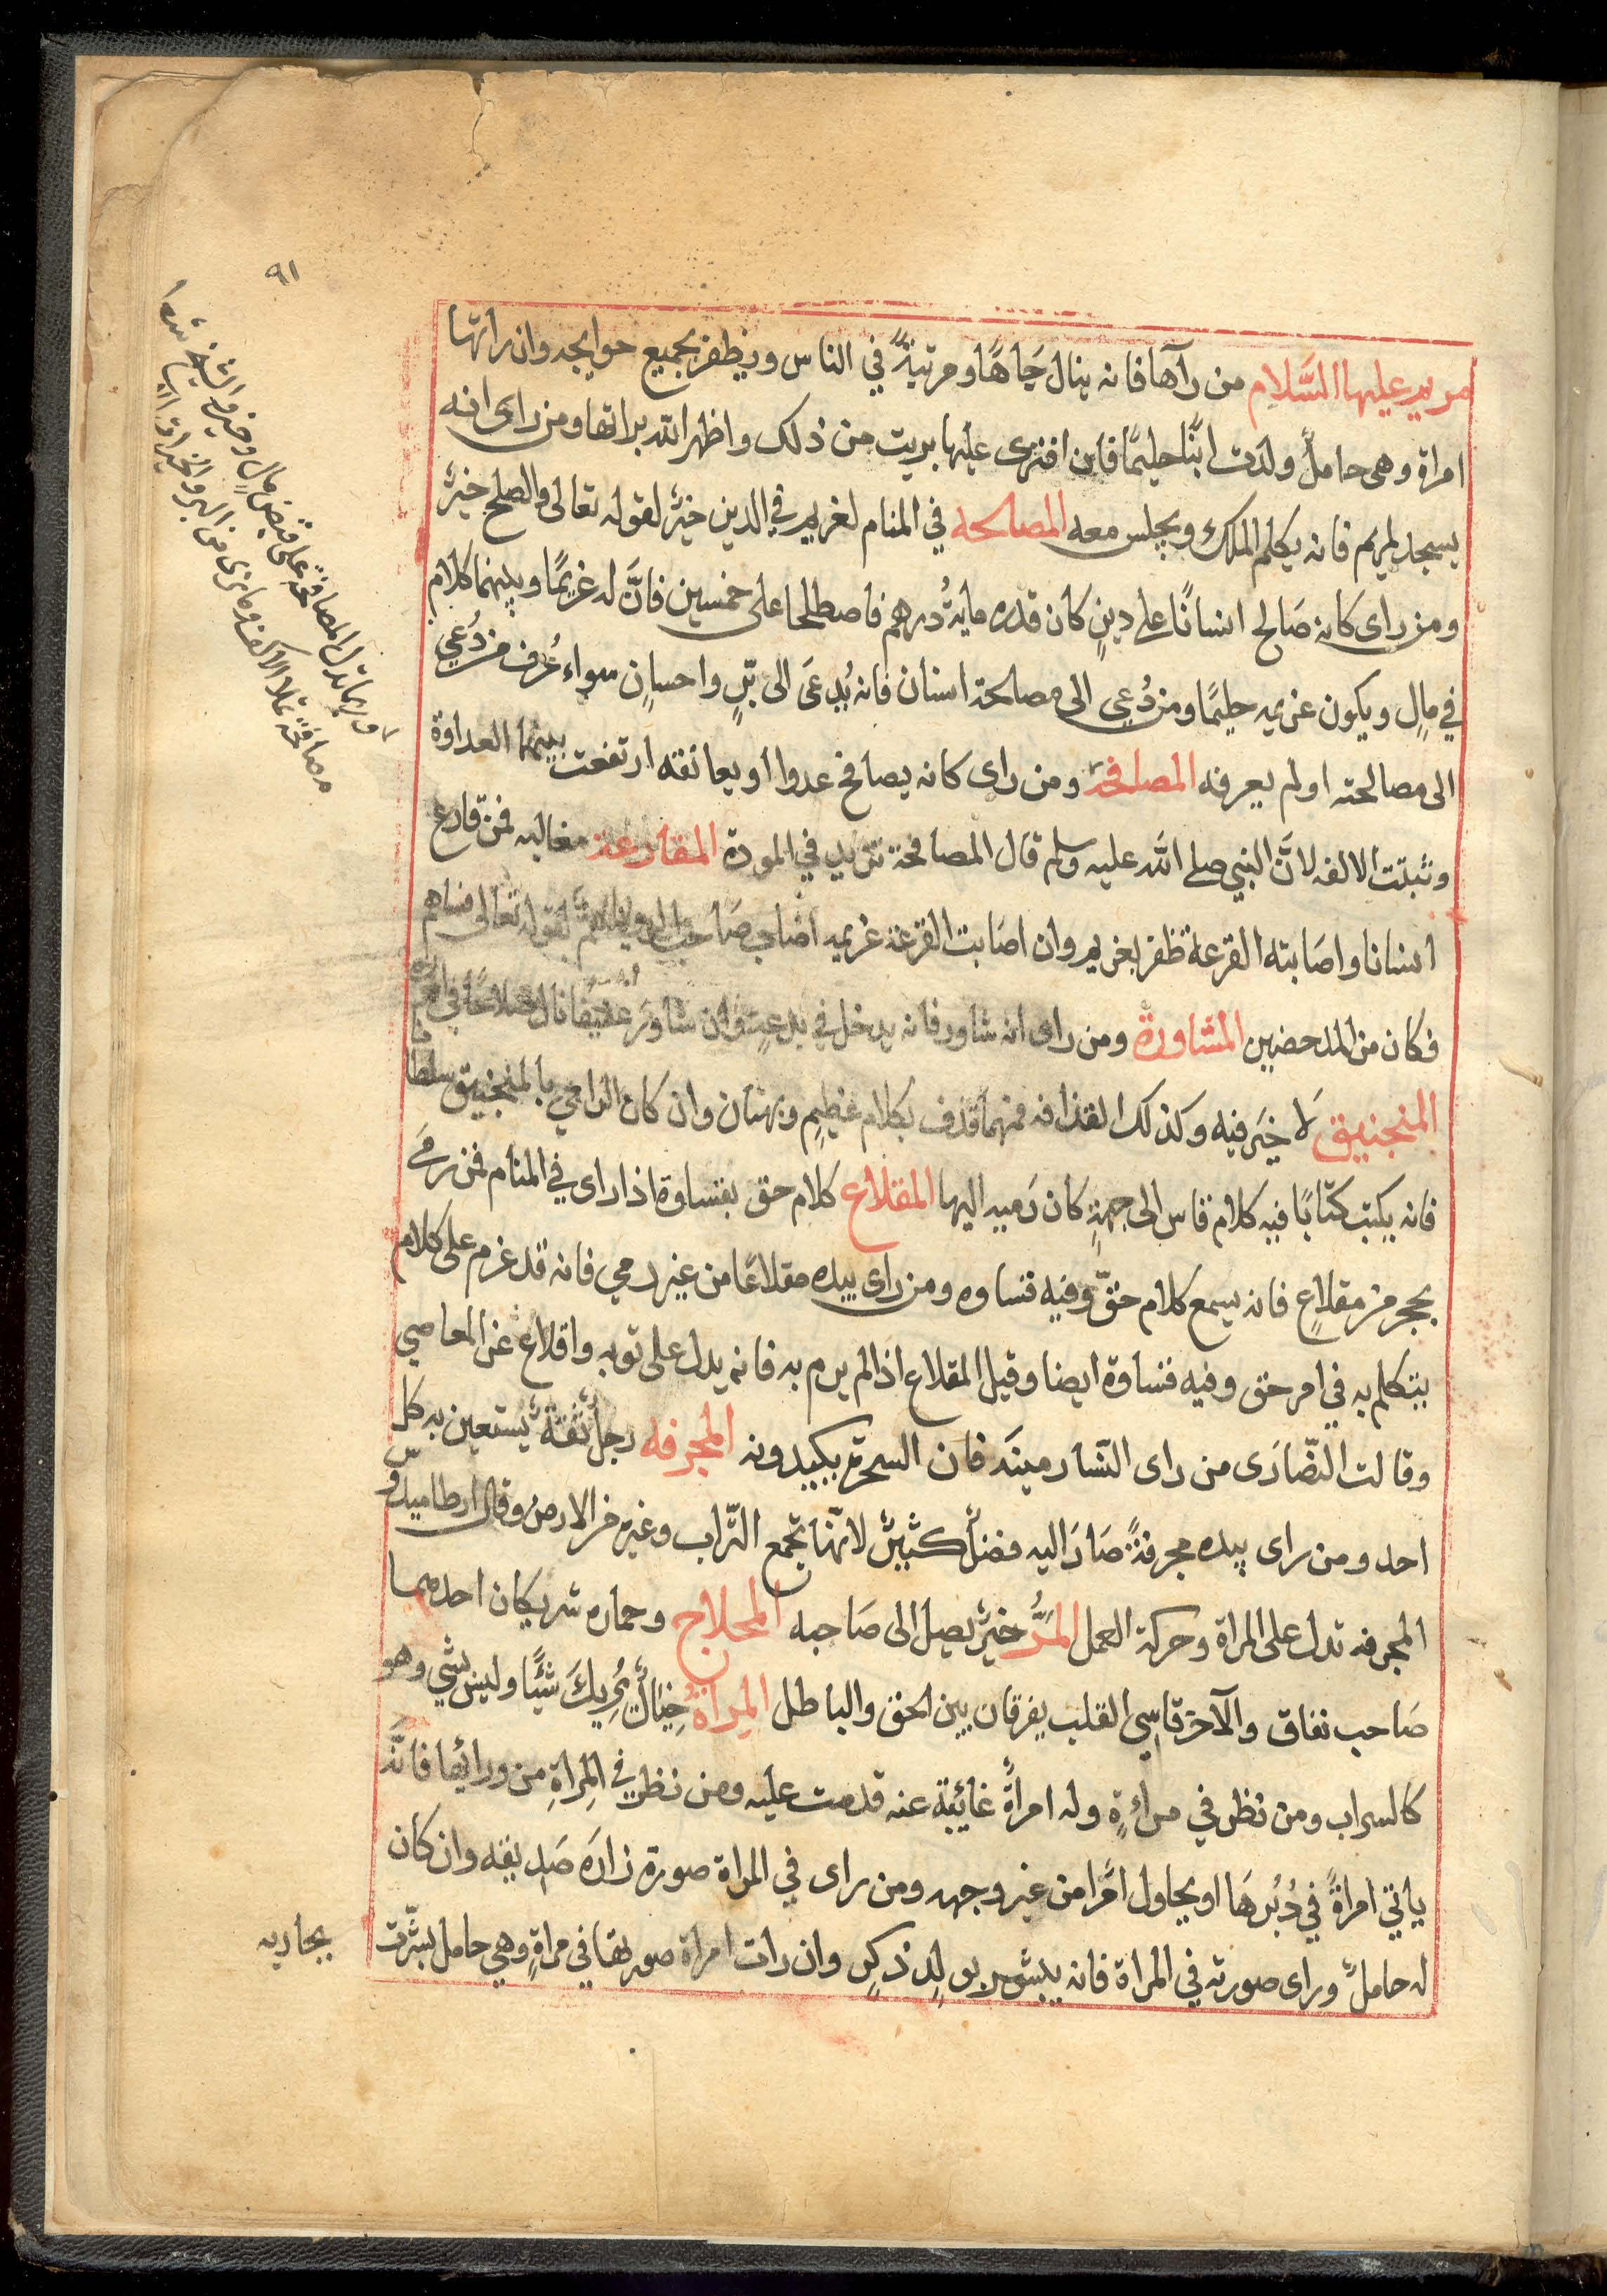 ٩١
مريم عليها السَّلام من رآها فانه ينال جَاهًا ومرتبةً في الناس ويظفر بجميع حوايجه وان راتها
امراة وهى حاملٌ ولدت ابنًا حليمًا فان افترى عليها بريت من ذلك واظهر الله براتها ومن راى انه
يسجد لمريم فانه يكلم الملك ويجلس معه المصالحه في المنام لغريم في الدين خيرٌ لقوله تعالى والصلح خيرٌ
ومن راى كانه صَالح انسانًا على دينٍ كان قدره ماية درهم فاصطلحا على خمسين فانَّ له غريمًا وبينهما كلام
في مالٍ ويكون غريمه حليمًا ومن دُعى الى مصالحة انسان فانه يُدعَى الى برٍّ واحسانٍ سواء عُرف من دُعي
الى مصالحته اولم يعرفه المصافحة ومن راى كانه يصافح عدوا او يعانقه ارتفعت بينهما العداوة
وثبتت الالفه لانَّ النبي صلى الله عليه وسلم قال المصافحة تزيد في المودة المقارعة مغالبه فمن قارع
انسانا واصَابته القرعة ظفر بغريمه وان اصَابت القرعة غريمه لقوله تعالى فساهم
فكان من المدحضين المشاورة ومن راى انه شاور فانه يدخل في
المنجنيق لَا خيَر فيه وكذلك القذافه فمنهما قذف بكلام عظيمٍ وبهتان وان كان الرامي بالمنجنيق سلطانا
فانه يكتب كتابًا فيه كلام قاس الى جهةٍ كان رَميه اليها المقلاع كلام حق بقساوة اذا راى في المنام فمن رمَى
بحجر من مقلاعٍ فانه يسمع كلام حقّ وفيه قساوه ومن راى بيده مقلاعًا من غير رمي فانه قد عزم على كلام
يتكلم به في امر حق وفيه قساوة ايضا وقيل المقلاع اذا لم يرم به فانه يدل على توبه واقلاع عن المعاصي
وقالت النصَّارَى من راى النَّشا رمينَه فان السحرة يكيدونه المجرفه رجلٌ ثقةٌ يستعين به كل
احد ومن راى بيده مجرفةً صَارَ اليه فضلٌ كثيرٌ لانهَّا تجمع التُّراب وغيره من الارض وقال ارطاميدوس
المجرفه تدل على المراة وحركة العمل المَرُّ خيرٌ يصل الى صَاحبه المحلاج وحماره شريكان احدهما
صَاحب نفاق والآخر قاسى القلب يفرقان بين الحق والباطل المِراة خيالٌ يُرِيكَ شيًّا وليس بشي وهو
كالسراب ومن نظر في مراةٍ وله امراةٌ غائبة عنه قدمت عليه ومن نظر في المِراةِ من ورائها فانَّه
ياتي امراةً في دُبُرهَا او يحاول امًرا من غير وجهه ومن راى في المراة صورة زارَه صَديقه وان كان
له حاملٌ وراى صورته في المراة فانه يبشر بولدٍ ذكرٍ وان رات امراة صورتها في مراةٍ وهي حامل بشّرت
بجاريه
وربما تدل المصافحة على قبض مالٍ وخير والشيخ
مصافحة ملاء الاكف وما يرى من البر والخيرات